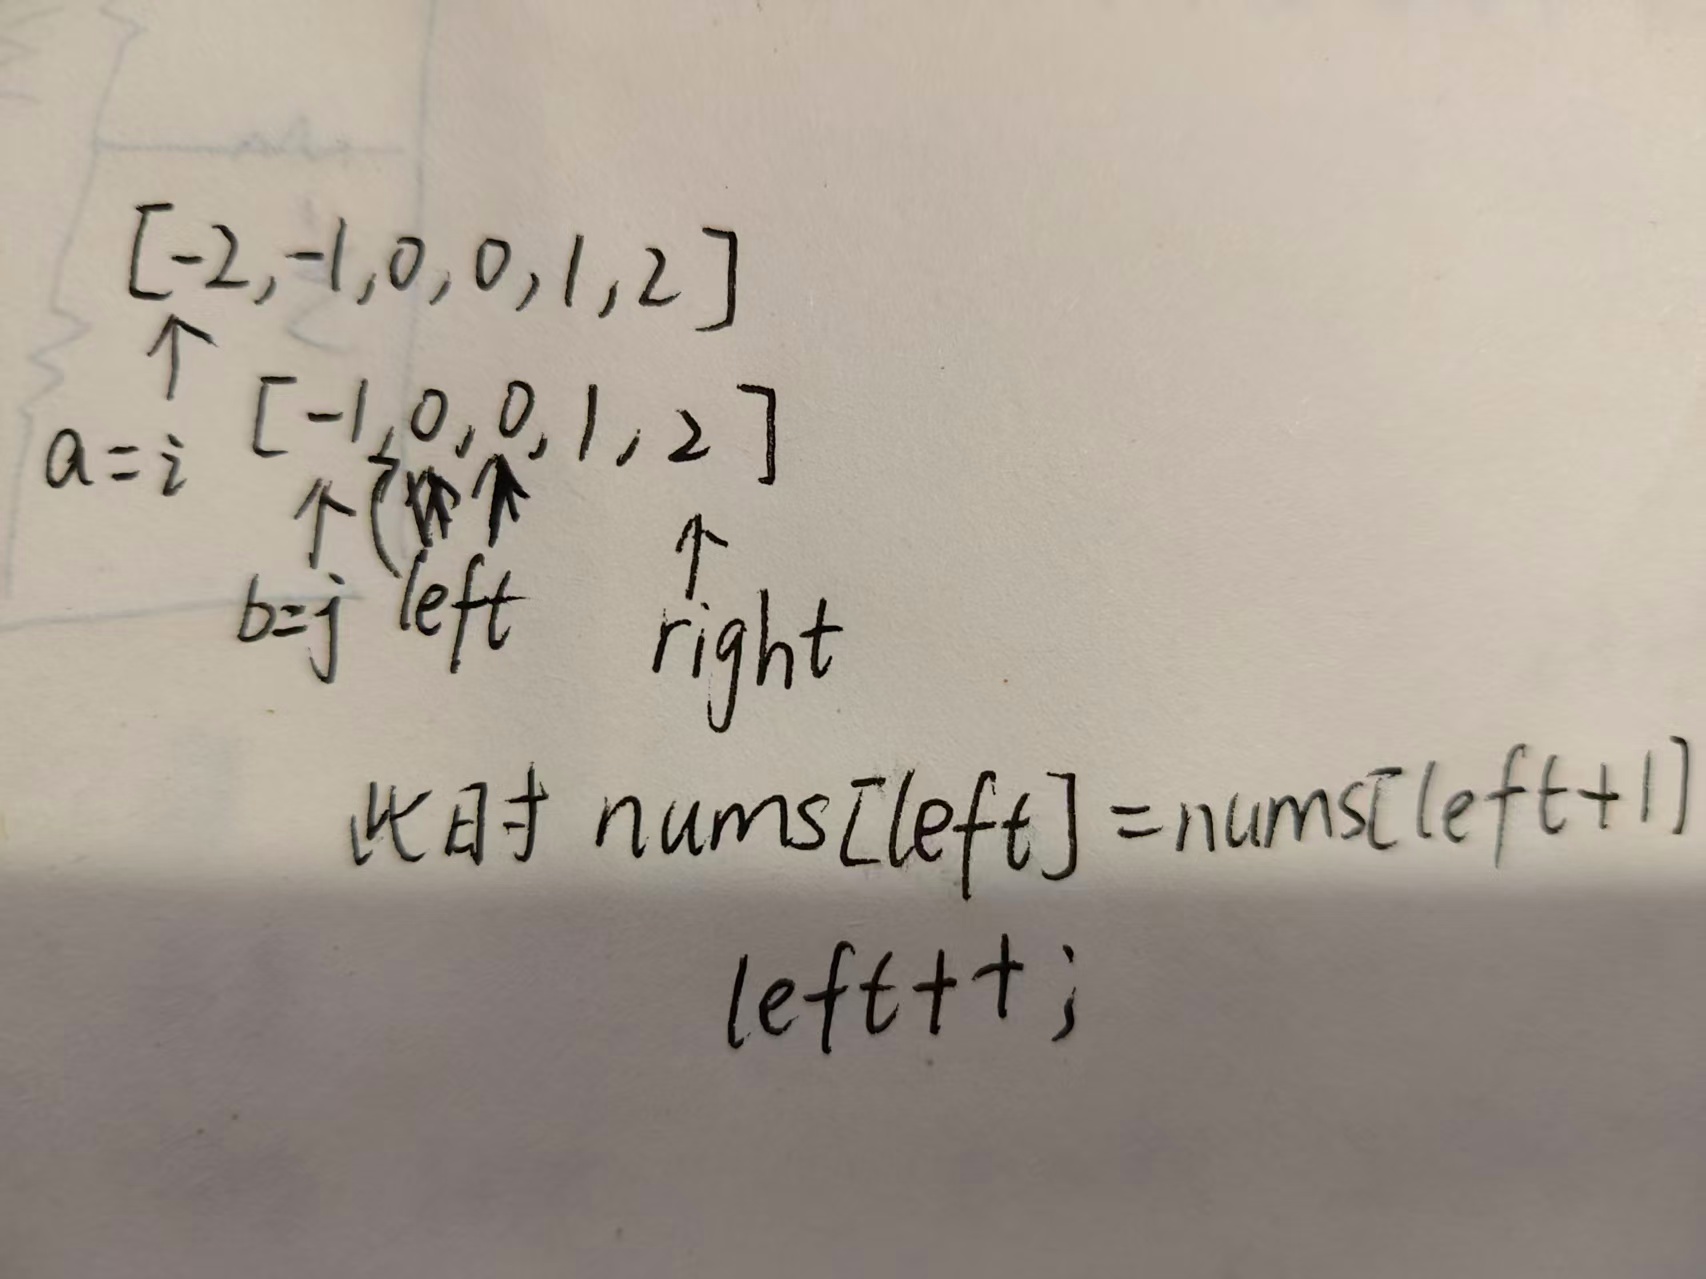 [-2,-1,0,0,1,2]
[-1,0,0,1,2]
a=i
b=j left right
此时 nums[left]=nums[left+1]
left++;